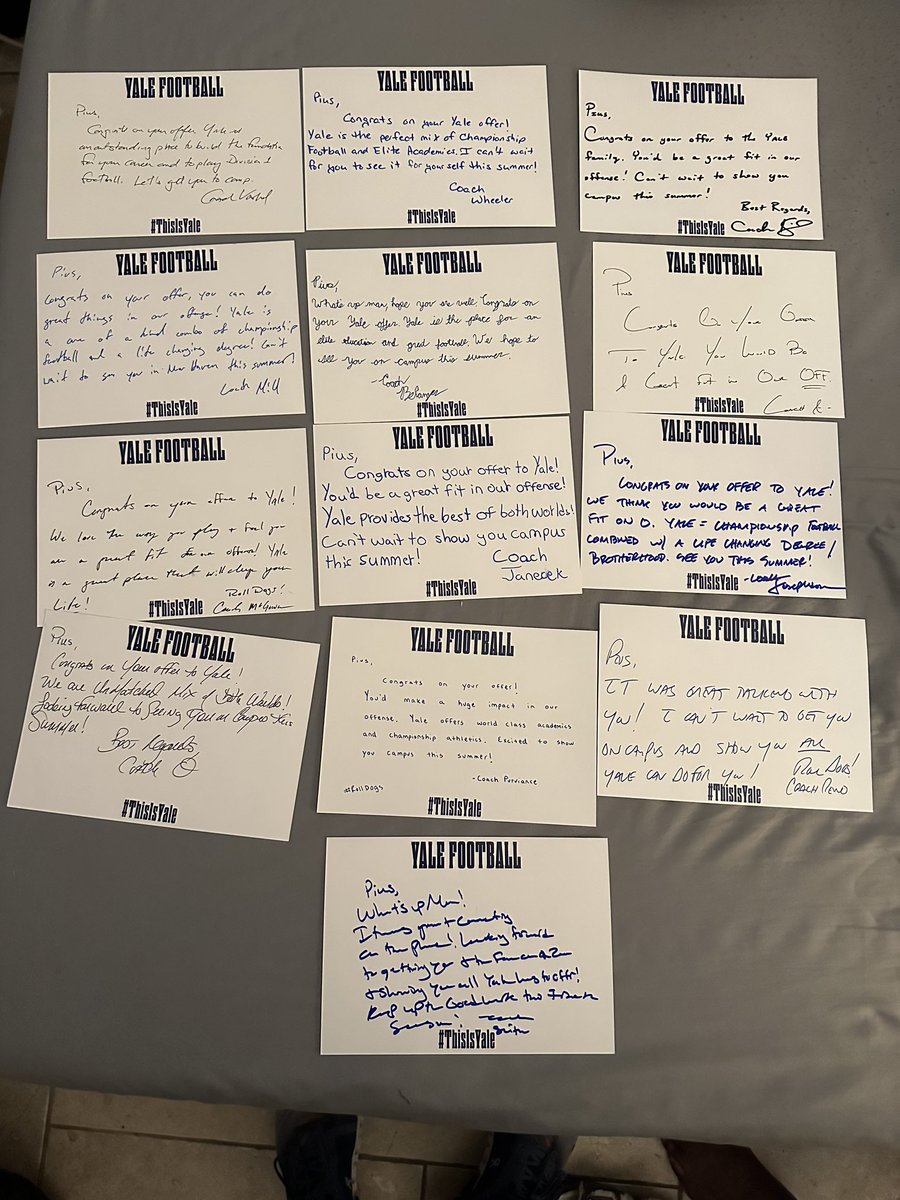 YALE FOOTBALL
Pius,
Congrats on your offer. Yale is
an outstanding place to build the foundation
for your career and to play Division 1
football. Let's get you to camp.
#ThisIsYale
YALE FOOTBALL
Pius,
Congrats on your Yale offer!
Yale is the perfect mix of Championship
Football and Elite Academics. I can't wait
for you to see it for yourself this summer!
Coach
Wheeler
#ThisIsYale
YALE FOOTBALL
Pius,
Congrats on your offer to the Yale
family. You'd be a great fit in our
offense! Can't wait to show you
campus this summer!
Best Regards,
#ThisIsYale Coach
YALE FOOTBALL
Pius,
Congrats on your offer, you can do
great things in our offense! Yale is
a one of a kind combo of championship
football and a life changing degree! Can't
wait to see you in New Haven this summer!
Coach Mill
#ThisIsYale
YALE FOOTBALL
Pius,
What's up man, hope you are well. Congrats on
your Yale offer. Yale is the place for an
elite education and great football. We hope to
see you on campus this summer.
-Coach
Belanger
#ThisIsYale
YALE FOOTBALL
Pius
Congrats On Your Offer
To Yale You Would Be
A Great fit in Our OFF.
#ThisIsYale Coach
YALE FOOTBALL
Pius,
Congrats on your offer to Yale!
We love the way you play + feel you
are a great fit in our offense! Yale
is a great place that will change your
Life! Roll Dogs!
#ThisIsYale Coach McGowan
YALE FOOTBALL
Pius,
Congrats on your offer to Yale!
You'd be a great fit in our offense!
Yale provides the best of both worlds!
Can't wait to show you campus
this summer! Coach
Janecek
#ThisIsYale
YALE FOOTBALL
Pius,
CONGRATS ON YOUR OFFER TO YALE!
WE THINK YOU WOULD BE A GREAT
FIT ON O. YALE = CHAMPIONSHIP FOOTBALL
COMBINED W/ A LIFE CHANGING DEGREE/
BROTHERHOOD. SEE YOU THIS SUMMER!
#ThisIsYale -Coach Josephson
YALE FOOTBALL
Pius,
Congrats on your offer to Yale!
We are Unmatched Mix of Both Worlds!
Looking forward to Seeing You on Campus this
Summer!
Best Regards,
Coach O
#ThisIsYale
YALE FOOTBALL
Pius,
Congrats on your offer!
You'd make a huge impact in our
offense. Yale offers world class academics
and championship athletics. Excited to show
you campus this summer!
-Coach Purviance
#RollDogs
#ThisIsYale
YALE FOOTBALL
Pius,
IT WAS GREAT TALKING WITH
YOU! I CAN'T WAIT TO GET YOU
ON CAMPUS AND SHOW YOU ALL
YALE CAN DO FOR YOU! ROLL DOGS!
#ThisIsYale COACH RENO
YALE FOOTBALL
Pius,
What's up Man!
It was great connecting
on the phone! Looking forward
to getting you
+ showing you all Yale has to offer!
Keep up the Good work
Season! Coach
Smith
#ThisIsYale